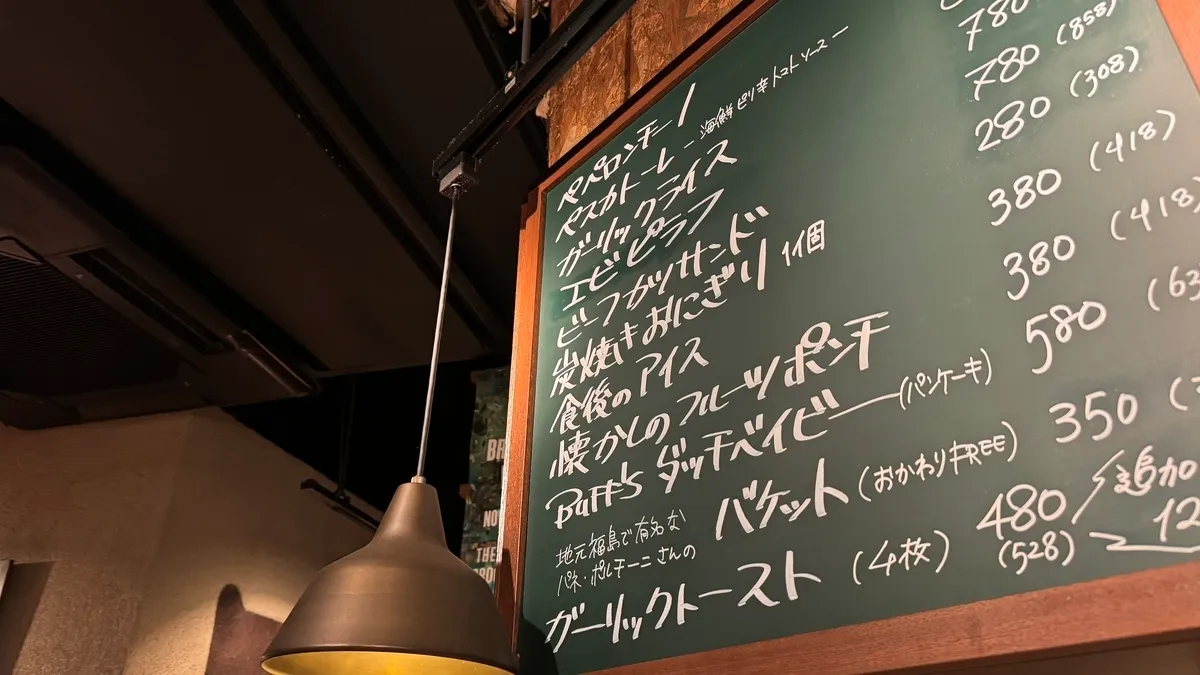 ペペロンチーノ
ペスカトーレ - 海鮮ピリ辛トマトソース ー
ガーリックライス
エビピラフ 780
ビーフカツサンド 780 (858)
炭焼きおにぎり 1個 280 (308)
食後のアイス 380 (418)
懐かしのフルーツポンチ 380 (418)
Buff's ダッチベイビー (パンケーキ) 580 (63
地元福島で有名な
パネ・ポルチーニさんの
バケット (おかわりFREE) 350 (
ガーリックトースト (4枚) 480 (528)
追加
12
BR
NO
THE